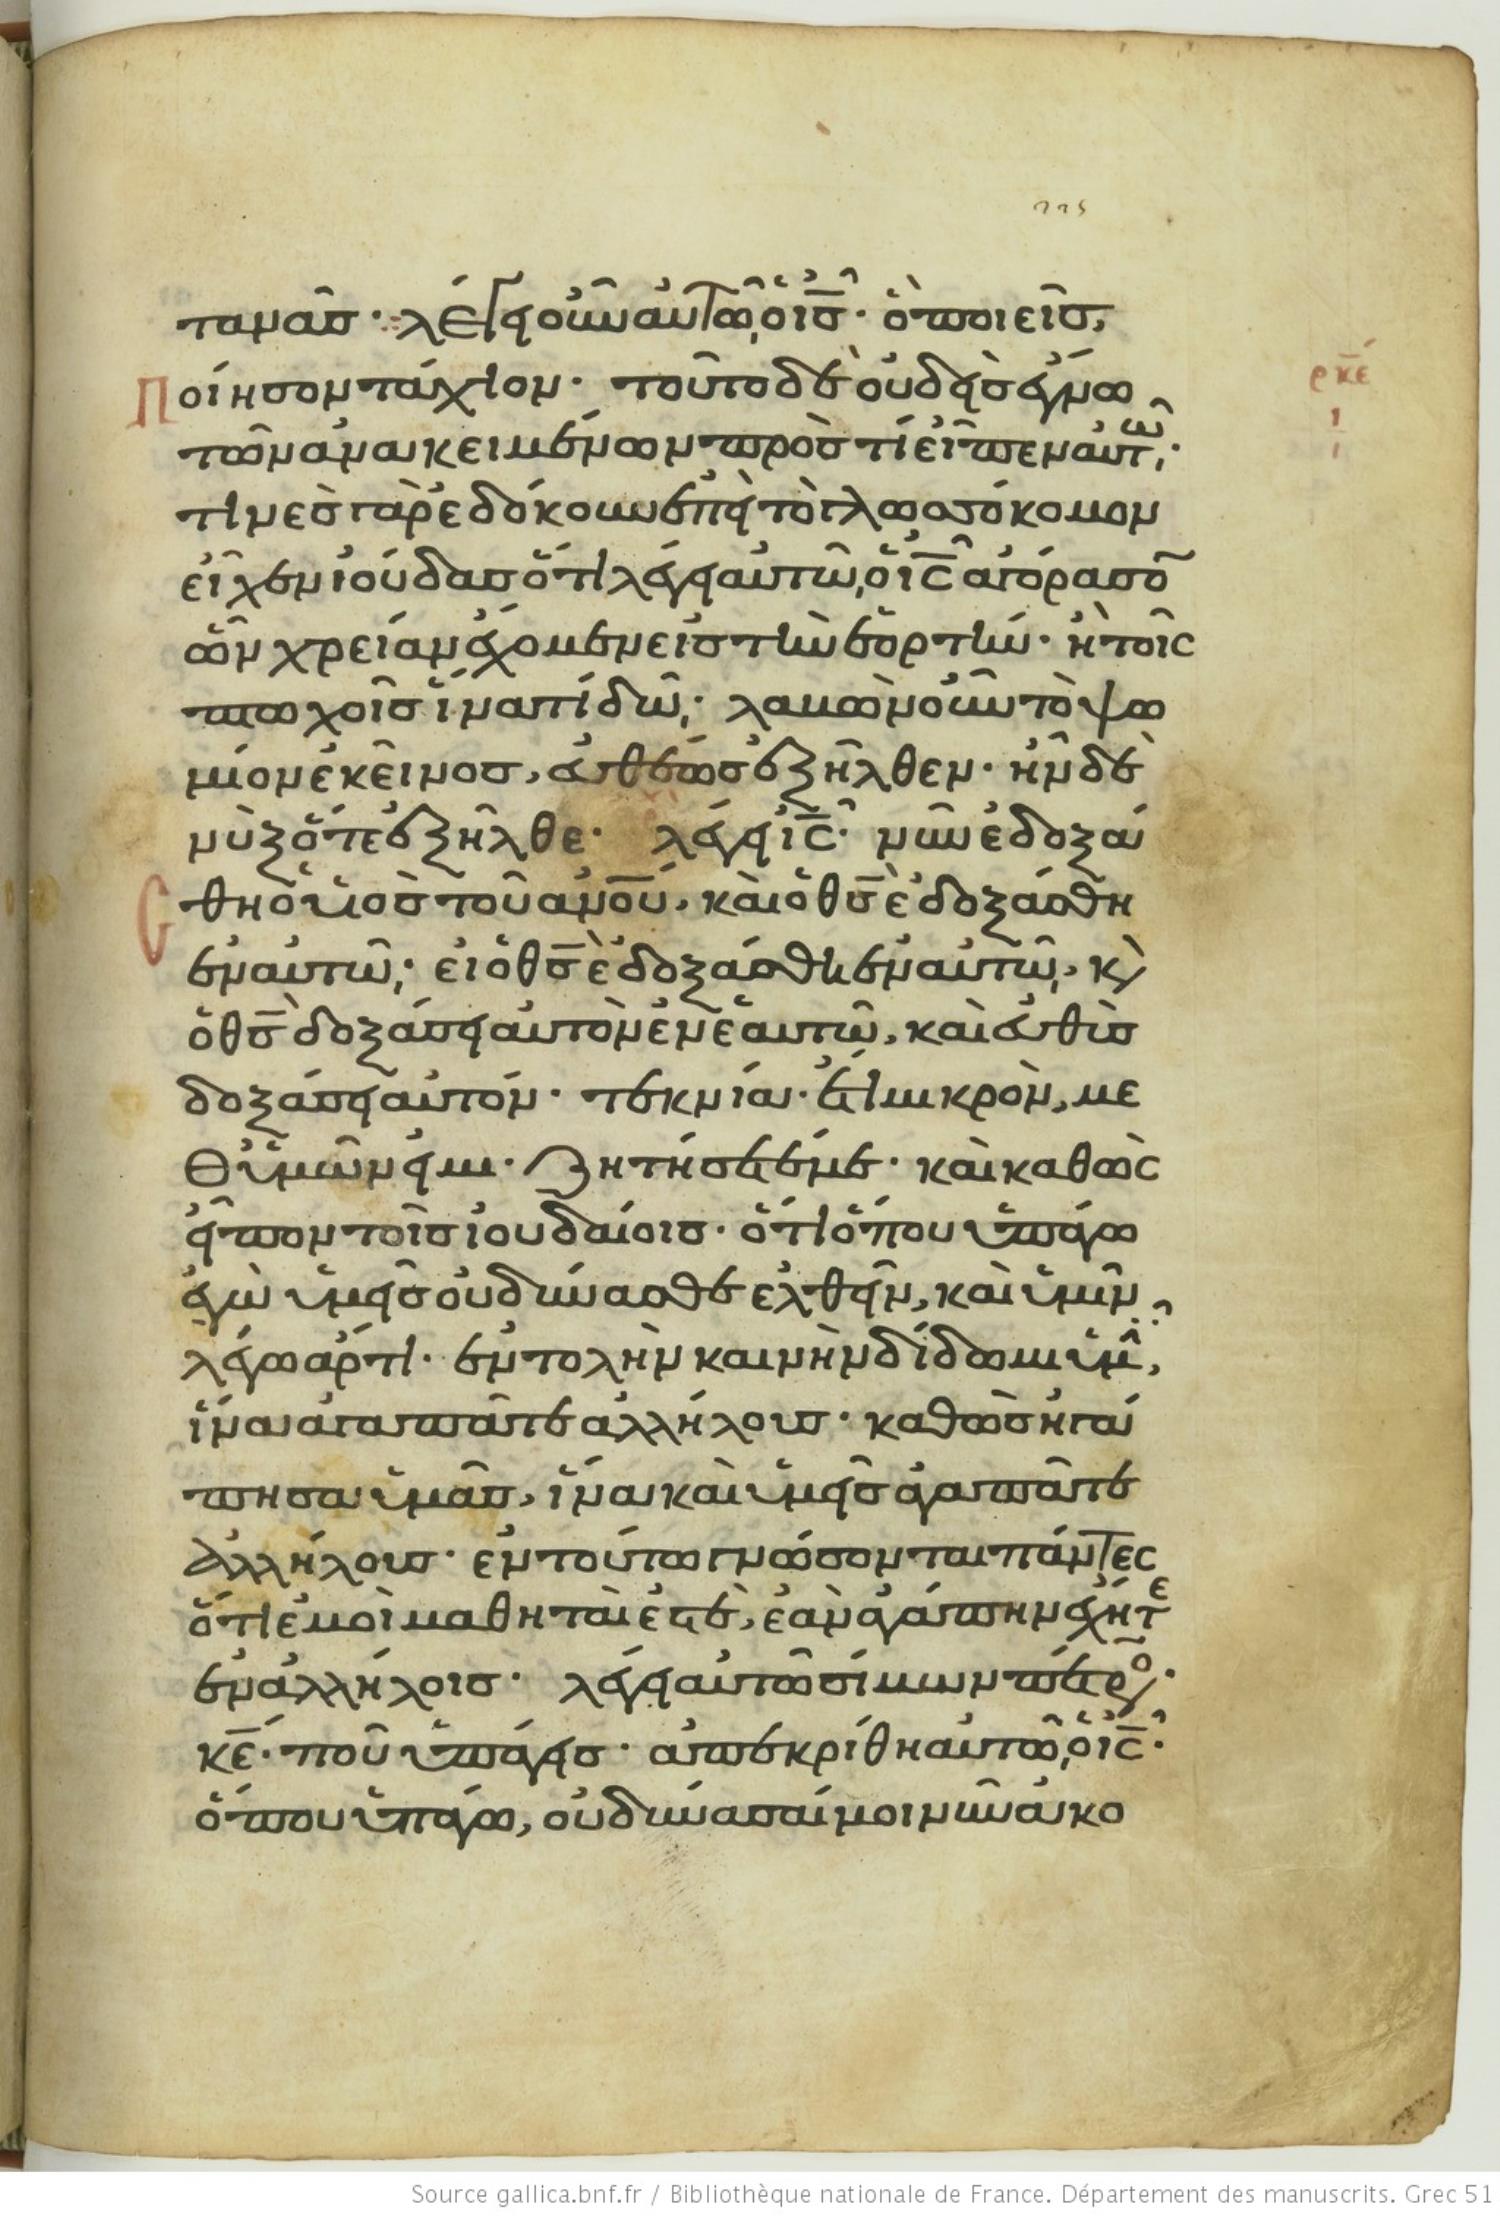 225
τανᾶσ· λέγει οὖν αὐτῶ, ὁ ισ̄· ὃ ποιεῖσ,
Ποίησον τάχιον· τοῦτο δὲ οὐδεὶσ ἔγνω
ρκε̄
ι
τῶν ἀνακειμένων πρὸσ τί εἶπεν αὐτῶ,·
τινὲσ γὰρ ἐδόκουν ἐπεὶ τὸ γλωσσόκομον
εἶχεν ἰούδασ ὅτι λέγει αὐτῶ, ὁ ις̄ ἀγόρασον
ὧν χρείαν ἔχομεν εἰσ τὴν ἑορτήν· ἢ τοῖς
πτωχοῖσ ἵνα τί δῶ,· λαβὼν οὖν τὸ ψω
μίον ἐκεῖνοσ, εὐθέωσ ἐξῆλθεν· ἦν δὲ
νὺξ ὅτε ἐξῆλθε· λέγει ις̄· νῦν ἐδοξά
Cθη ὁ υἱοσ τοῦ ανου̅, καὶ ὁ θσ̄ ἐδοξάσθη
ἐν αὐτῶ,· εἰ ὁ θσ̄ ἐδοξάσθη ἐν αὐτῶ,, κ
ὁ θσ̄ δοξάσει αὐτὸν ἐν ἑαυτῶ, καὶ εὐθὺσ
δοξάσει αὐτόν· τεκνία· ἔτι μικρὸν, με
θ ὑμῶν εἰμι· ζητήσετέ με· καὶ καθὼς
εἶπον τοῖσ ἰουδαίοισ· ὅτι ὅπου ὑπάγω
ἐγὼ ὑμεῖσ οὐ δύνασθε ἐλθεῖν, καὶ ὑμῖν
λέγω ἄρτι· ἐντολὴν καινὴν δίδωμι ὑμῖ,
ἵνα ἀγαπᾶτε ἀλλήλουσ· καθὼσ ἠγά
πησα ὑμᾶσ, ἵνα καὶ ὑμεῖσ ἀγαπᾶτε
ἀλλήλουσ· ἐν τούτω γνώσονται πάντες
ὅτι ἐμοὶ μαθηταὶ ἐστὲ, ἐὰν ἀγάπην ἔχητε
ἐν ἀλλήλοισ· λέγει αὐτῶ σίμων πέτρο·
κε̄· ποῦ ὑπάγεισ· ἀπεκρίθη αὐτῶ, ὁ ις̄·
ὅπου ὑπάγω, οὐ δύνασαί μοι νῦν ἀκο
Source gallica.bnf.fr / Bibliothèque nationale de France. Département des manuscrits. Grec 51